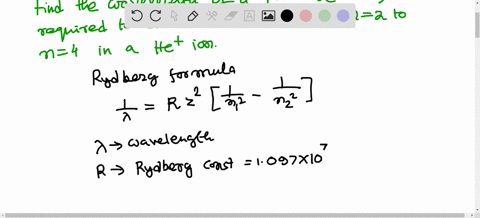 find the
required to n=2 to
n=4 in a He⁺ ion.
Rydberg formula
1/λ = R z² [1/n₁² - 1/n₂²]
λ → wavelength
R → Rydberg const = 1.097×10⁷